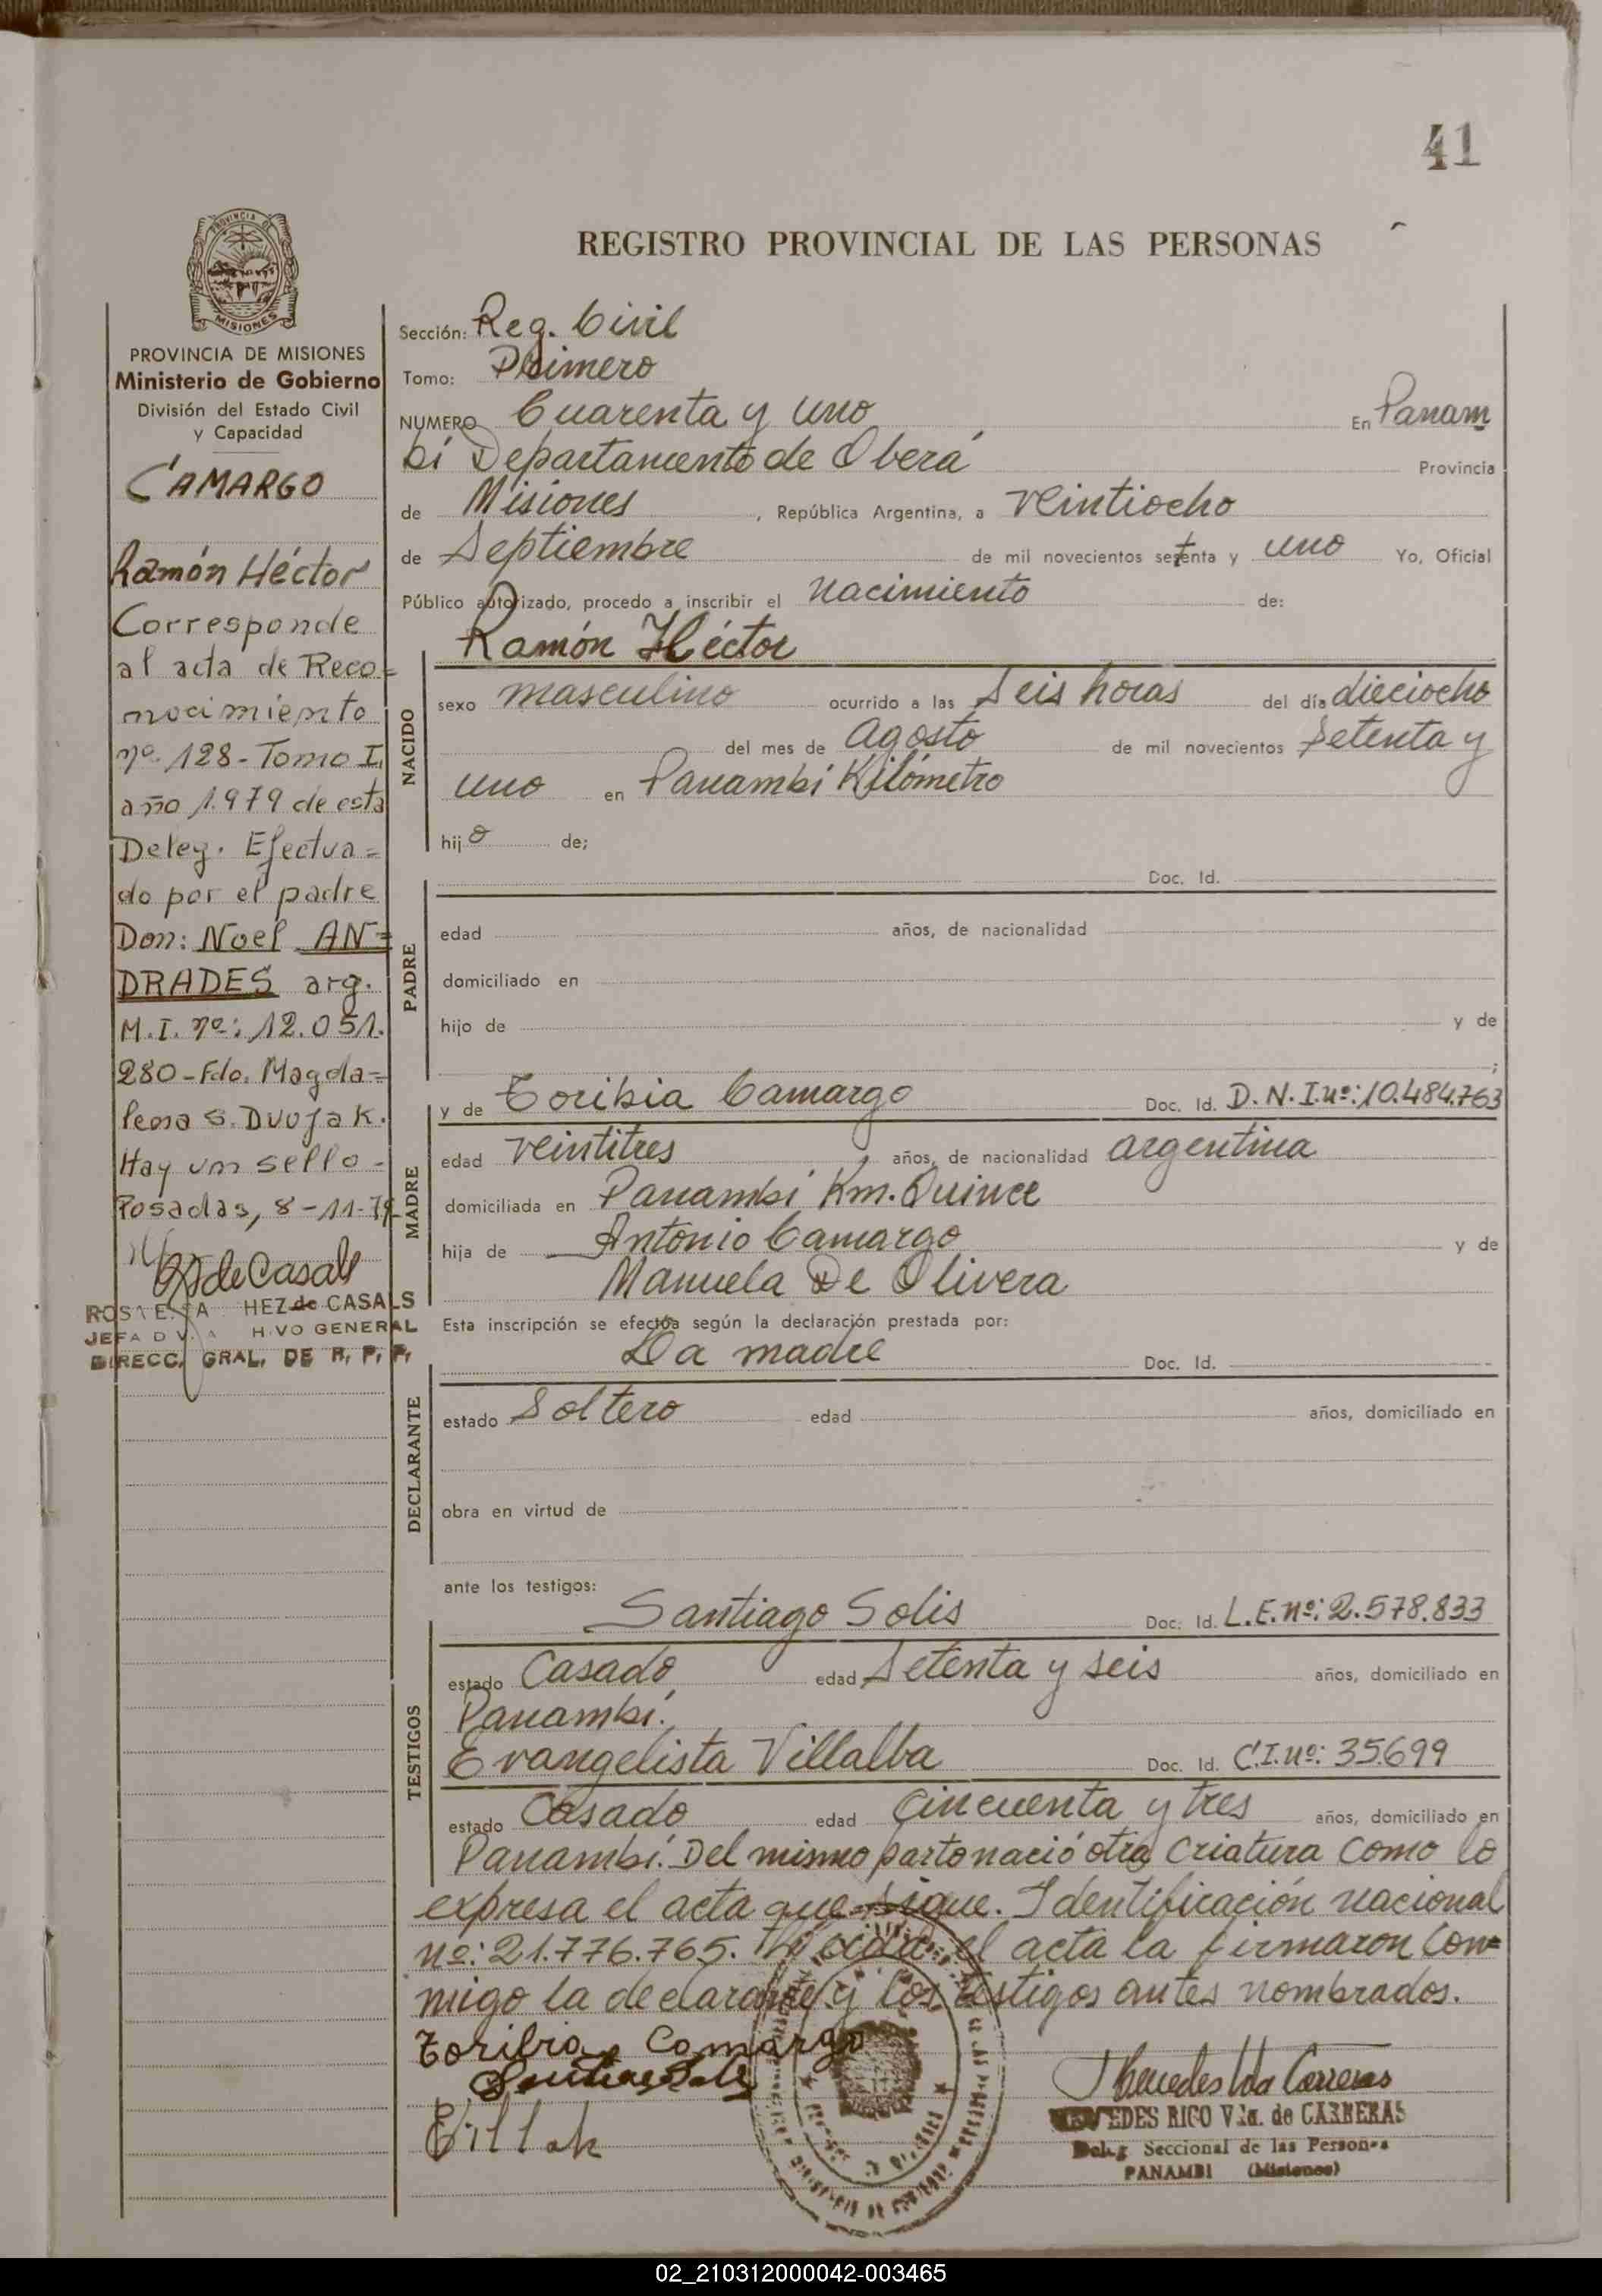 41
PROVINCIA DE
MISIONES
REGISTRO PROVINCIAL DE LAS PERSONAS
PROVINCIA DE MISIONES
Ministerio de Gobierno
División del Estado Civil
y Capacidad
CAMARGO
Ramón Héctor
Corresponde
al acta de Reco=
nocimiento
nº 128 - Tomo I,
año 1.979 de esta
Deleg. Efectua=
do por el padre
Don: Noel AN=
DRADES arg.
M.I. nº: 12.051.
280 - Fdo. Magda=
lena S. Dvojak.
Hay un sello -
Posadas, 8-11-79
de Casals
HEZ de CASALS
JEFA HIVO GENERAL
DIRECC. GRAL. DE R. P. P.
Sección: Reg. Civil
Tomo: Primero
NUMERO Cuarenta y uno En Panam
bí Departamento de Oberá Provincia
de Misiones, República Argentina, a veintiocho
de Septiembre de mil novecientos setenta y uno Yo, Oficial
Público autorizado, procedo a inscribir el nacimiento de:
Ramón Héctor
NACIDO
sexo masculino ocurrido a las seis horas del día dieciocho
del mes de agosto de mil novecientos setenta y
uno en Panambí Kilómetro
hijo de;
Doc. Id.
PADRE
edad años, de nacionalidad
domiciliado en
hijo de y de
;
MADRE
y de Toribia Camargo Doc. Id. D.N.I.nº: 10.484.763
edad veintitres años, de nacionalidad argentina
domiciliada en Panambí Km. Quince
hija de Antonio Camargo y de
Manuela De Olivera
Esta inscripción se efectúa según la declaración prestada por:
La madre Doc. Id.
DECLARANTE
estado Soltero edad años, domiciliado en
obra en virtud de
ante los testigos:
Santiago Solis Doc. Id. L.E.nº: 2.578.833
TESTIGOS
estado Casado edad Setenta y seis años, domiciliado en
Panambí.
Evangelista Villalba Doc. Id. C.I.nº: 35.699
estado Casado edad Cincuenta y tres años, domiciliado en
Panambí. Del mismo parto nació otra criatura como lo
expresa el acta que sigue. Identificación nacional
nº: 21.776.765. Leída el acta la firmaron con=
migo la declarante y los testigos antes nombrados.
Toribia Camargo
Villalb
RICO Vda. de CARRERAS
Deleg. Seccional de las Personas
PANAMBI (Misiones)
02_210312000042-003465